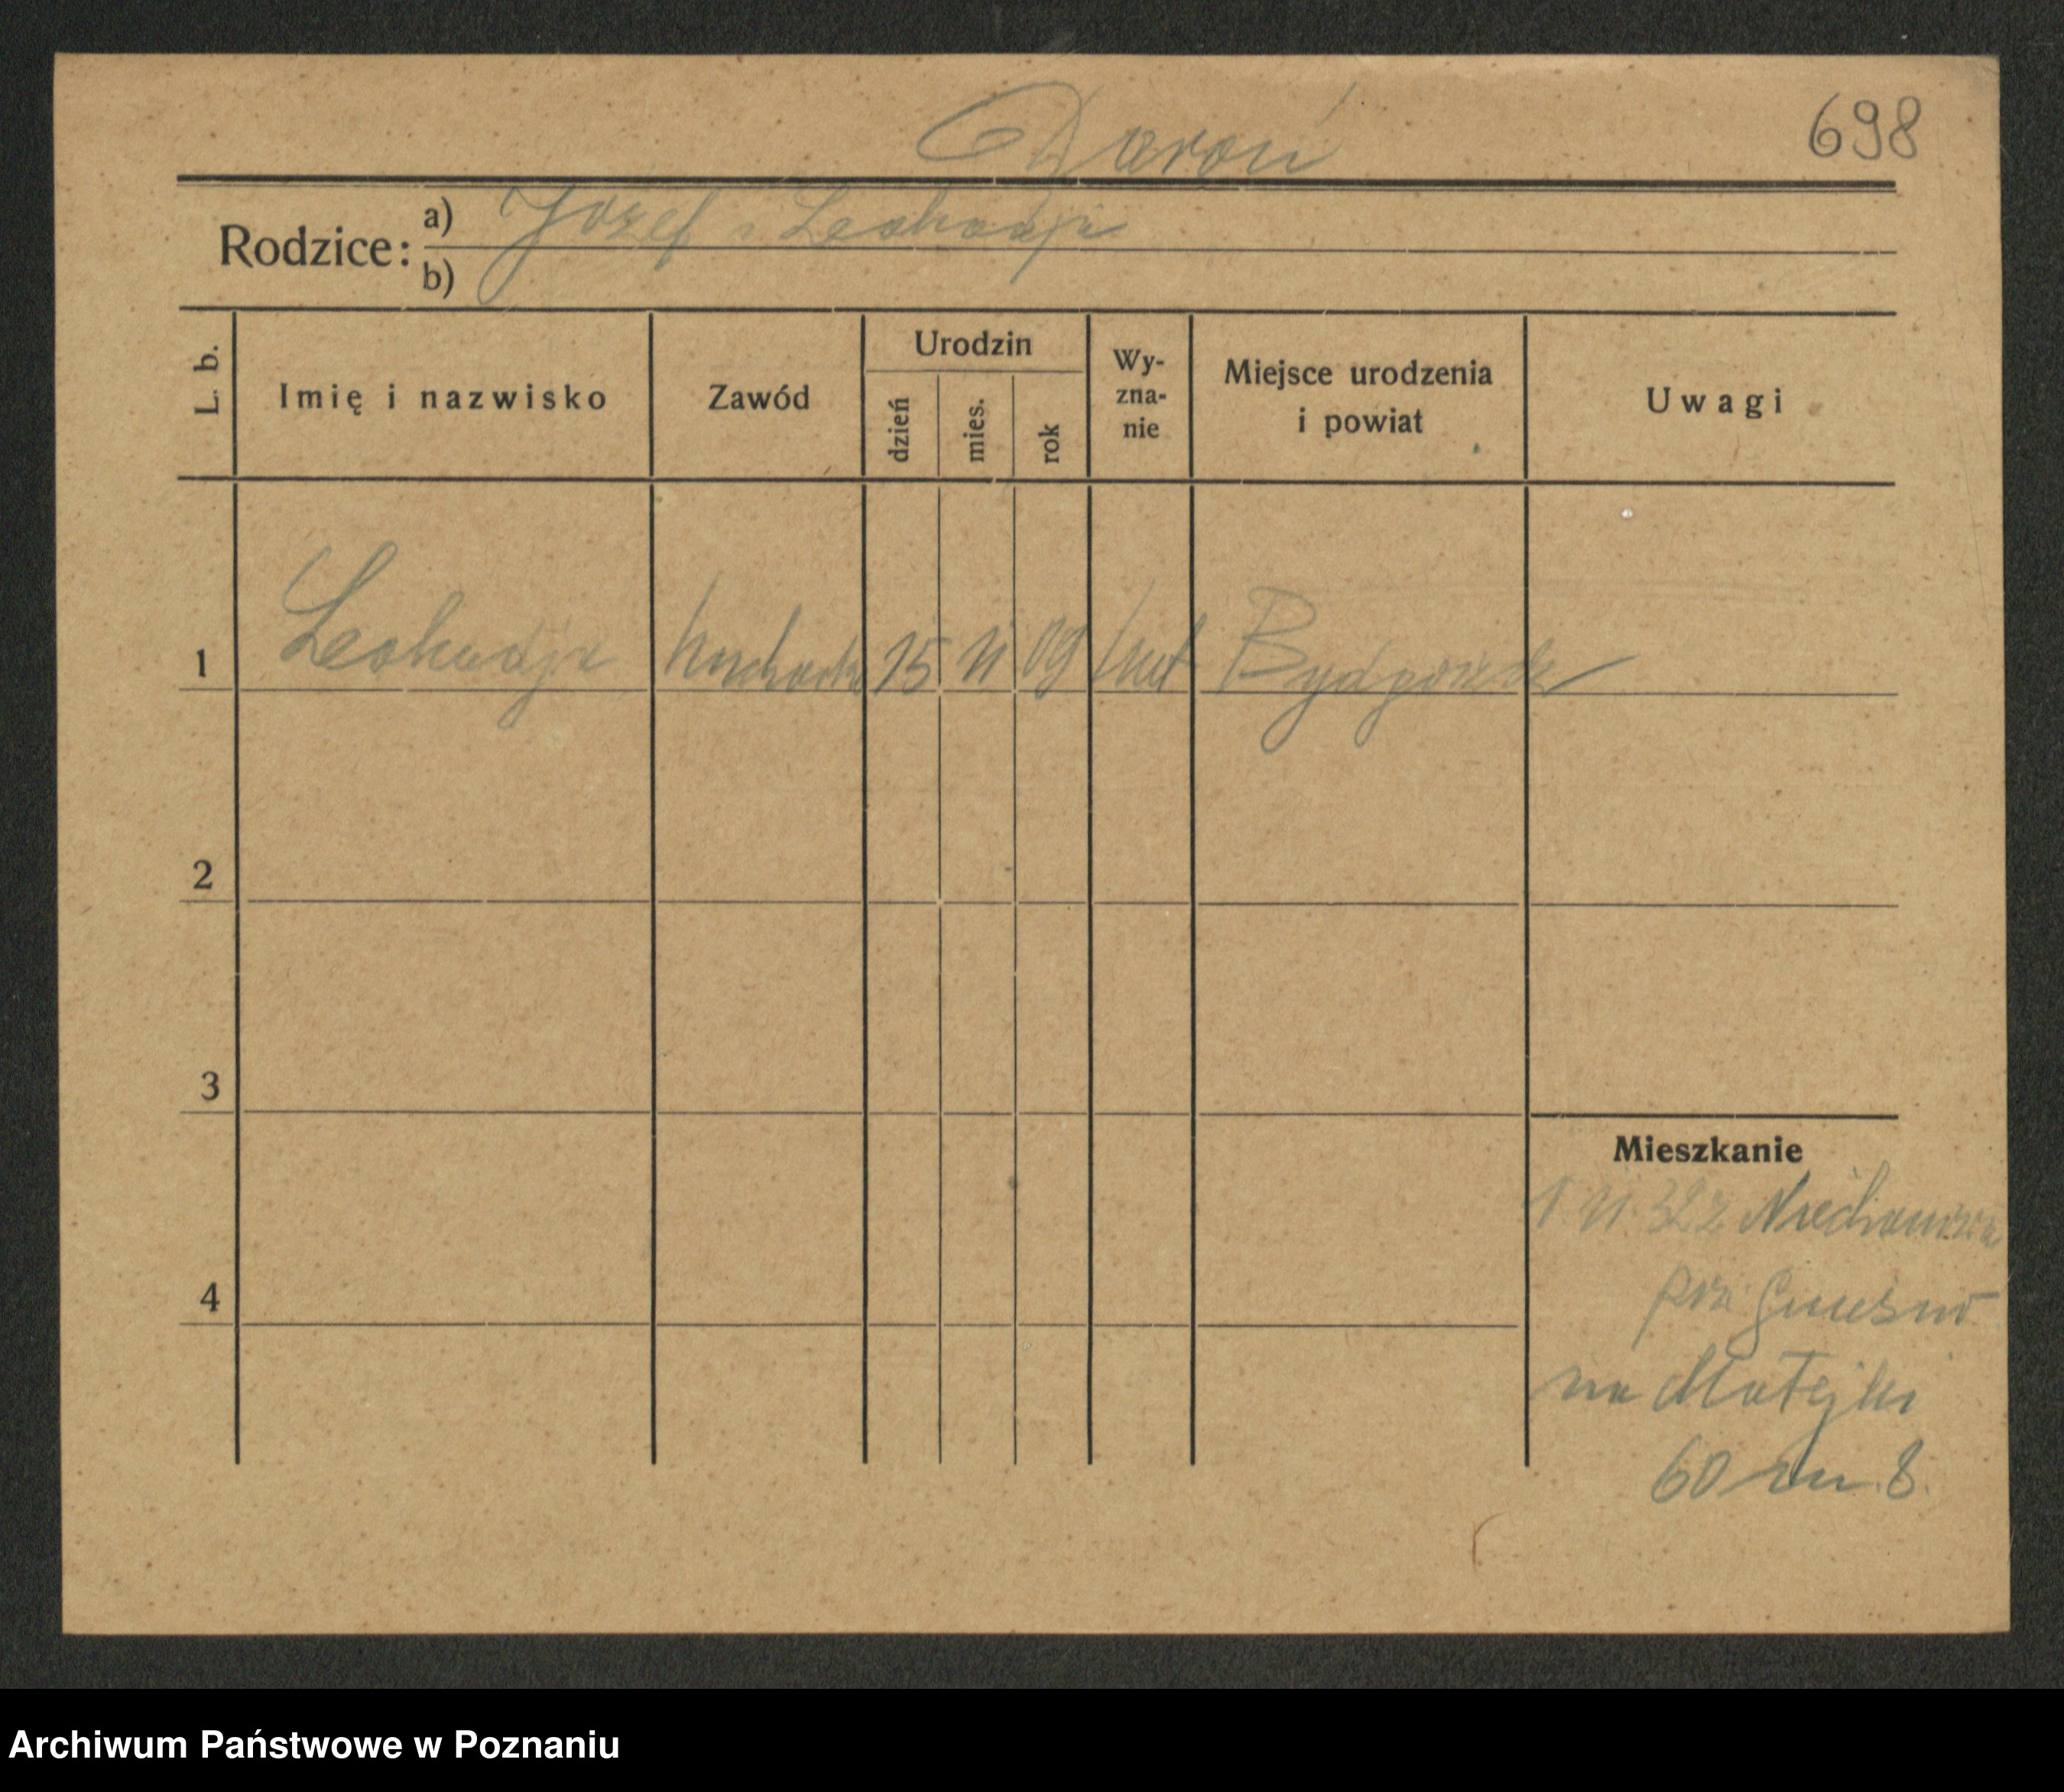 Daroń
698
Rodzice: a) Józef i Leokadja
b)
L. b.
Imię i nazwisko
Zawód
Urodzin
dzień
mies.
rok
Wy-
zna-
nie
Miejsce urodzenia
i powiat
Uwagi
1 Leokadja kucharka 15 11 09 kat
2
3
4
Mieszkanie
1 11 32 z Niechanowa
Gniezno
na Matejki
60 m. 8.
Archiwum Państwowe w Poznaniu